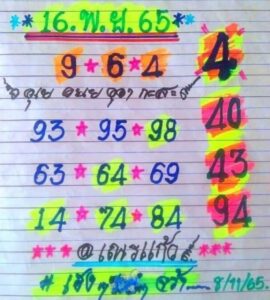 * * 16.พ.ย.65 * *
9 * 6 * 4
4
93 * 95 * 98
40
63 * 64 * 69
43
14 * 74 * 84
94
* * * @เณรแก้ว
# 8/11/65.